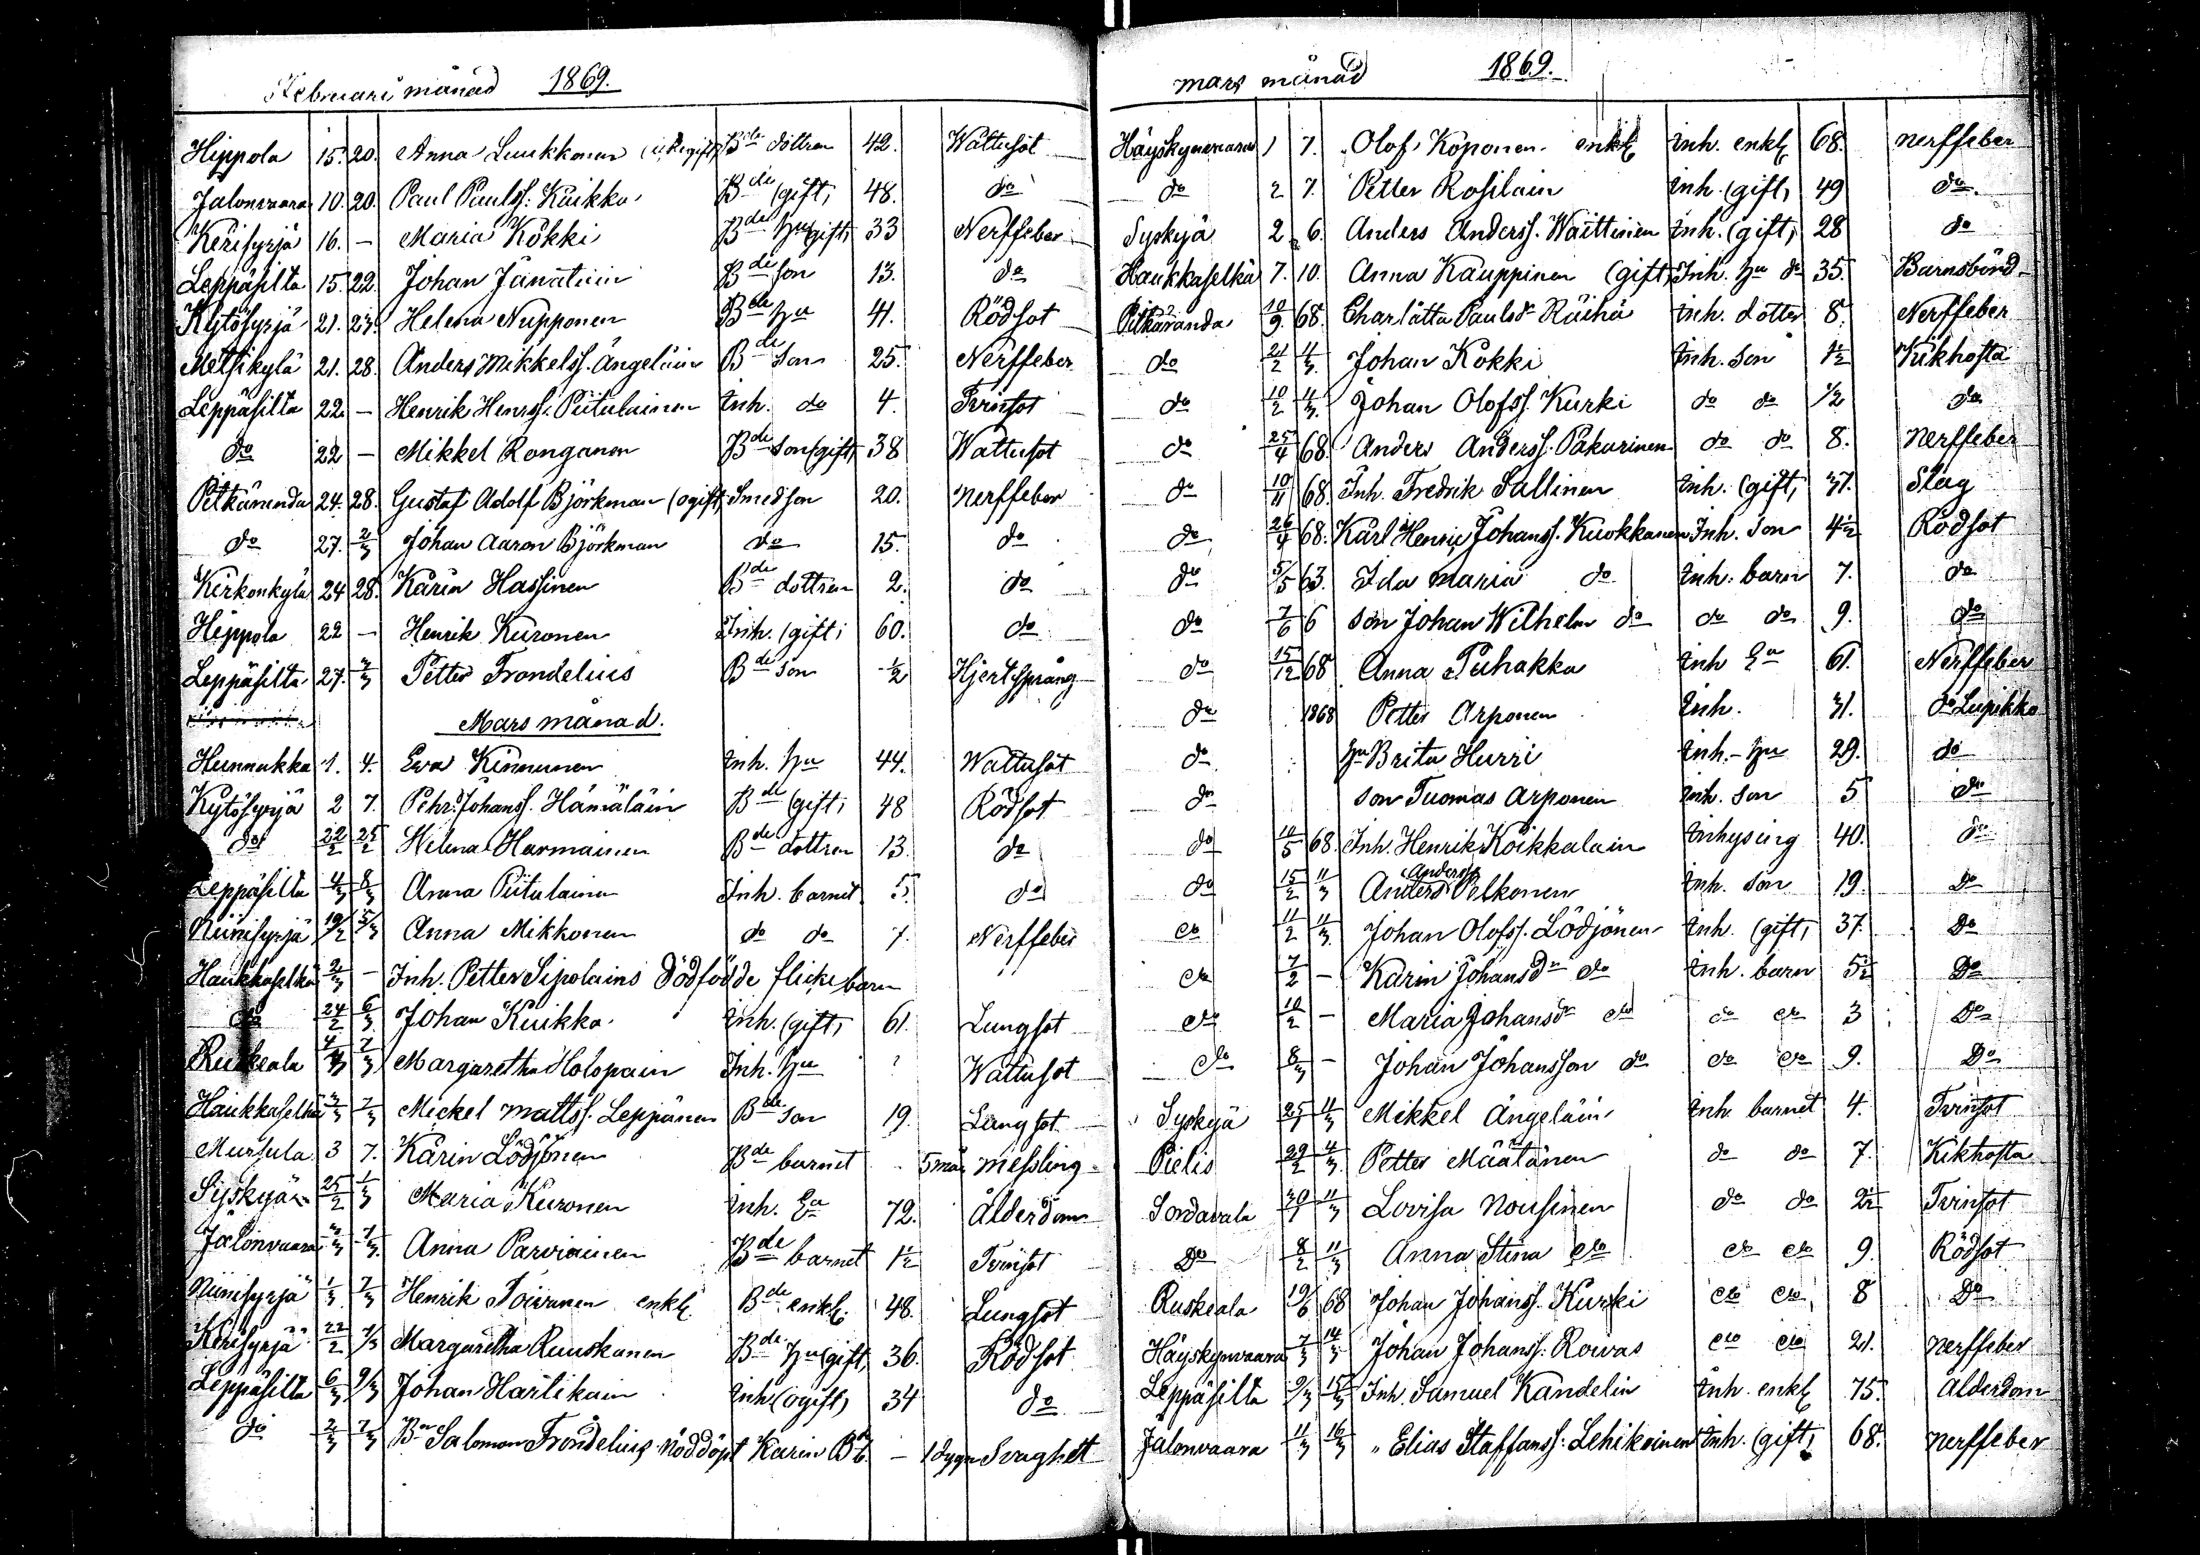 Februari månad 1869.
Hippola 15. 20. Anna Luukkonen Bde dottren 42. Wattusot
Jalonvaara 10. 20. Paul Paulss. Kuikka Bde (gift) 48. do
Kerisyrjä 16. — Maria Kokki Bde hu (gift) 33 Nerffeber
Leppäsilta 15. 22. Johan Jänatuin Bde son 13. do
Kytösyrjä 21. 23. Helena Nupponen Bde hu 41. Rödsot
Metsikylä 21. 28. Anders Mikkelss. Ängeläin Bde son 25. Nerffeber
Leppäsilta 22. — Henrik Henrss. Piitulainen Inh. do 4. Tvinsot
do 22 — Mikkel Ronganen Bde son (gift) 38 Wattusot
Pitkäranda 24. 28. Gustaf Adolf Björkman (ogift) Smedson 20. Nerffeber
do 27. 2/3 Johan Aaron Björkman do 15. do
Kirkonkylä 24 28. Karin Hassinen Bde dottren 2. do
Hippola 22 — Henrik Kuronen Inh. (gift) 60. do
Leppäsilta 27. Petter Frondelius Bde son 1/2 Hjertsprång
Mars månad.
Hunnukka 1. 4. Eva Kinnunen Inh. hu 44. Wattusot
Kytösyrjä 2 7. Pehr Johanss. Hämäläin Bde (gift) 48 Rödsot
do 22/2 25/2 Helena Harmainen Bde dottren 13. do
Leppäsilta 4/3 8/3 Anna Piitulainen Inh. barnet 5. do
Niinisyrjä 19/2 5/3 Anna Mikkonen do do 7. Nerffeber
Haukkaselkä 2/3 — Inh. Petter Sipolains dödfödde flicke barn
do 24/2 6/3 Johan Kuikka Inh. (gift) 61. Lungsot
Ruskeala Margaretha Holopain Inh. hu ? Wattusot
Haukkaselkä 7/3 Mickel Mattss. Leppänen Bde son 19. Lungsot
Mursula 3 7. Karin Lödjönen Bde barnet 5 mån Messling
Syskyjä 25/2 1/3 Maria Kuronen Inh. Ea 72. Ålderdom
Jalonvaara Anna Parviainen Bde barnet 1 1/2 Tvinsot
Niinisyrjä 1/3 7/3 Henrik Toivanen enkl. Bde enkl. 48. Lungsot
Kerisyrjä 22/2 7/3 Margaretha Ruuskanen Bde hu (gift) 36. Rödsot
Leppäsilta 6/3 9/3 Johan Hartikain Inh (ogift) 34 do
do 2/3 7/3 Bn Salomon Frondelius nöddöpt Karin Bdb. — 1 dygn Svaghet
Mars månad 1869.
Häyskynvaara 1 7. Olof Koponen enkl Inh. enkl 68. Nerffeber
do 2 7. Petter Rosilain Inh. (gift) 49 do
Syskyjä 2 6. Anders Anderss. Waittinen Inh. (gift) 28 do
Haukkaselkä 7. 10. Anna Kauppinen (gift) Inh. hu do 35. Barnsbörd
Pitkäranda 10/9 68. Charlotta Paulsdr Räihä Inh. dotter 8. Nerffeber
do 21/2 4/3 Johan Kokki Inh. son 1 1/2 Kikhosta
do 10/2 4/3 Johan Olofss. Kurki do do 1/2 do
do 25/4 68. Anders Anderss. Pakarinen do do 8. Nerffeber
do 10/11 68. Inh. Fredrik Sallinen Inh. (gift) 37. Slag
do 26/4 68. Karl Henric Johanss. Kuokkanen Inh. son 4 1/2 Rödsot
do 5/5 63. Ida Maria do Inh. barn 7. do
do 7/6 6 son Johan Wilhelm do do do 9. do
do 15/12 68 Anna Puhakka Inh Ea 61. Nerffeber
do 1868 Petter Arponen Inh. 31. do Lupikko
do hu Brita Hurri Inh. hu 29. do
do son Tuomas Arponen Inh. son 5 do
do 68. Inh. Henrik Koikkalain Inhysing 40. do
do 15/2 11/3 Anders Anderss. Pelkonen Inh. son 19. Do
do 11/2 11/3 Johan Olofss. Lödjönen Inh. (gift) 37. Do
do 7/2 — Karin Johansdr do Inh. barn 5 1/2 Do
do 10/2 — Maria Johansdr do do do 3 Do
do 8/3 — Johan Johansson do do do 9. Do
Syskyjä Mikkel Ängeläin Inh. barnet 4. Tvinsot
Pielis 29/2 4/3 Petter Määtänen do do 7. Kikhosta
Sordavala 11/3 Lovisa Nousinen do do 2 1/2 Tvinsot
Do 8/2 11/3 Anna Stina do do do 9. Rödsot
Ruskeala 19/6 68 Johan Johanss. Kurki do do 8 Do
Häyskynvaara 7/3 14/3 Johan Johanss. Rowas do do 21. Nerffeber
Leppäsilta 9/3 15/3 Inh. Samuel Kandelin Inh. enkl 75. Ålderdom
Jalonvaara 11/3 16/3 " Elias Staffanss. Lehikoinen Inh. (gift) 68. Nerffeber